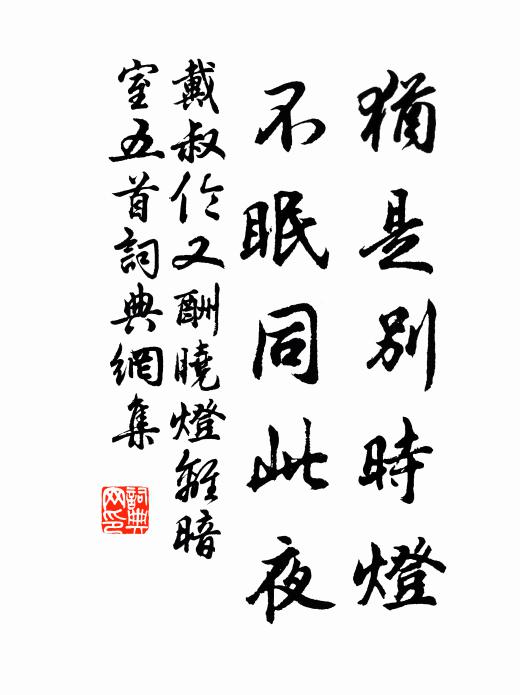 猶是別時燈
不眠同此夜
戴叔伦又酬曉燈離暗
室五首詞典網集
詞典
网印